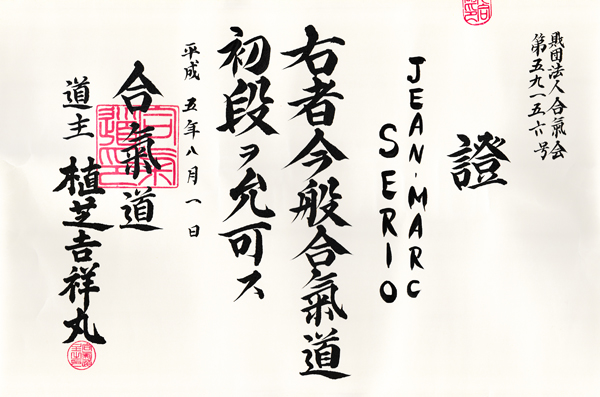 財団法人合氣会
第五九一五六号
證
JEAN-MARC
SERIO
右者今般合氣道
初段ヲ允可ス
平成五年八月一日
合氣道
道主 植芝吉祥丸